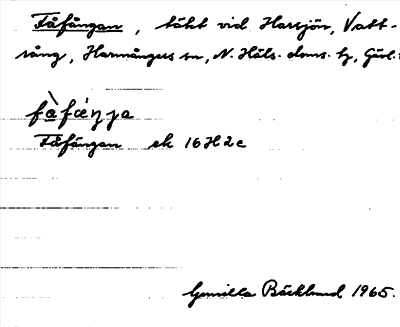 Fåfängan, täkt vid Harsjön, Vatt-
rång, Harmångers sn, N. Häls. doms. hg, Gävl.
fàfäŋ̇ɟa
Fåfängan ek 16H2c
Gunilla Bäcklund 1965.